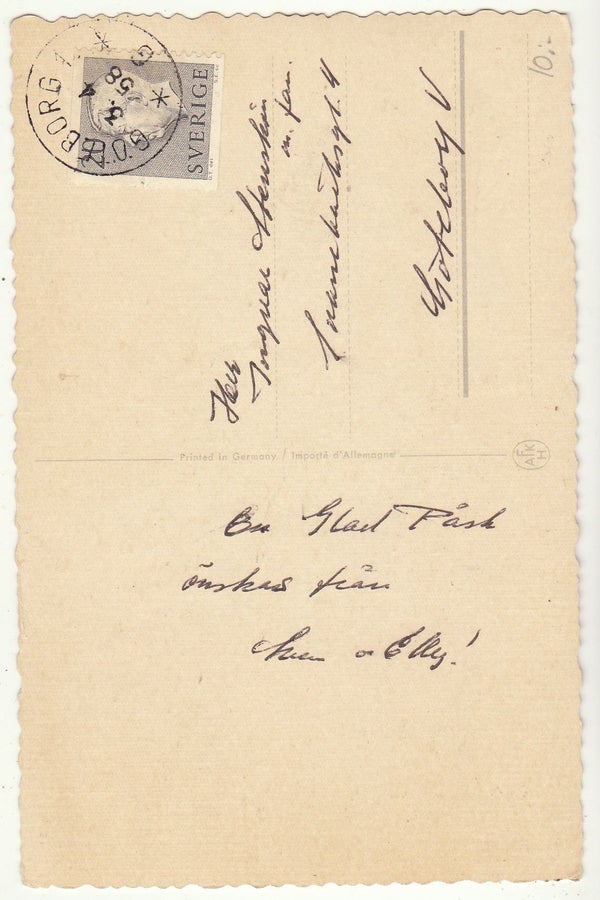 GÖTEBORG 1
3.4
58
SVERIGE
10:-
Herr
Ingvar
m. fam.
4
Göteborg V
Printed in Germany / Importé d'Allemagne
AFKH
En Glad Påsk
önskas från
Sven o Elly!